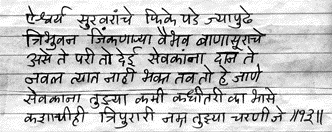 ऐश्वर्य सुरवरांचे फिके पडे ज्यापुढे
त्रिभुवन जिंकणाऱ्या वैभव बाणासूराचे
असे ते परी तो देई सेवकांना दान ते
नवल त्यात नाही भक्त तव तो हे जाणे
सेवकाना तुझ्या कमी कधीतरी का भासे
कशाचीही त्रिपुरारी नम्र तुझ्या चरणी जे ॥१३॥